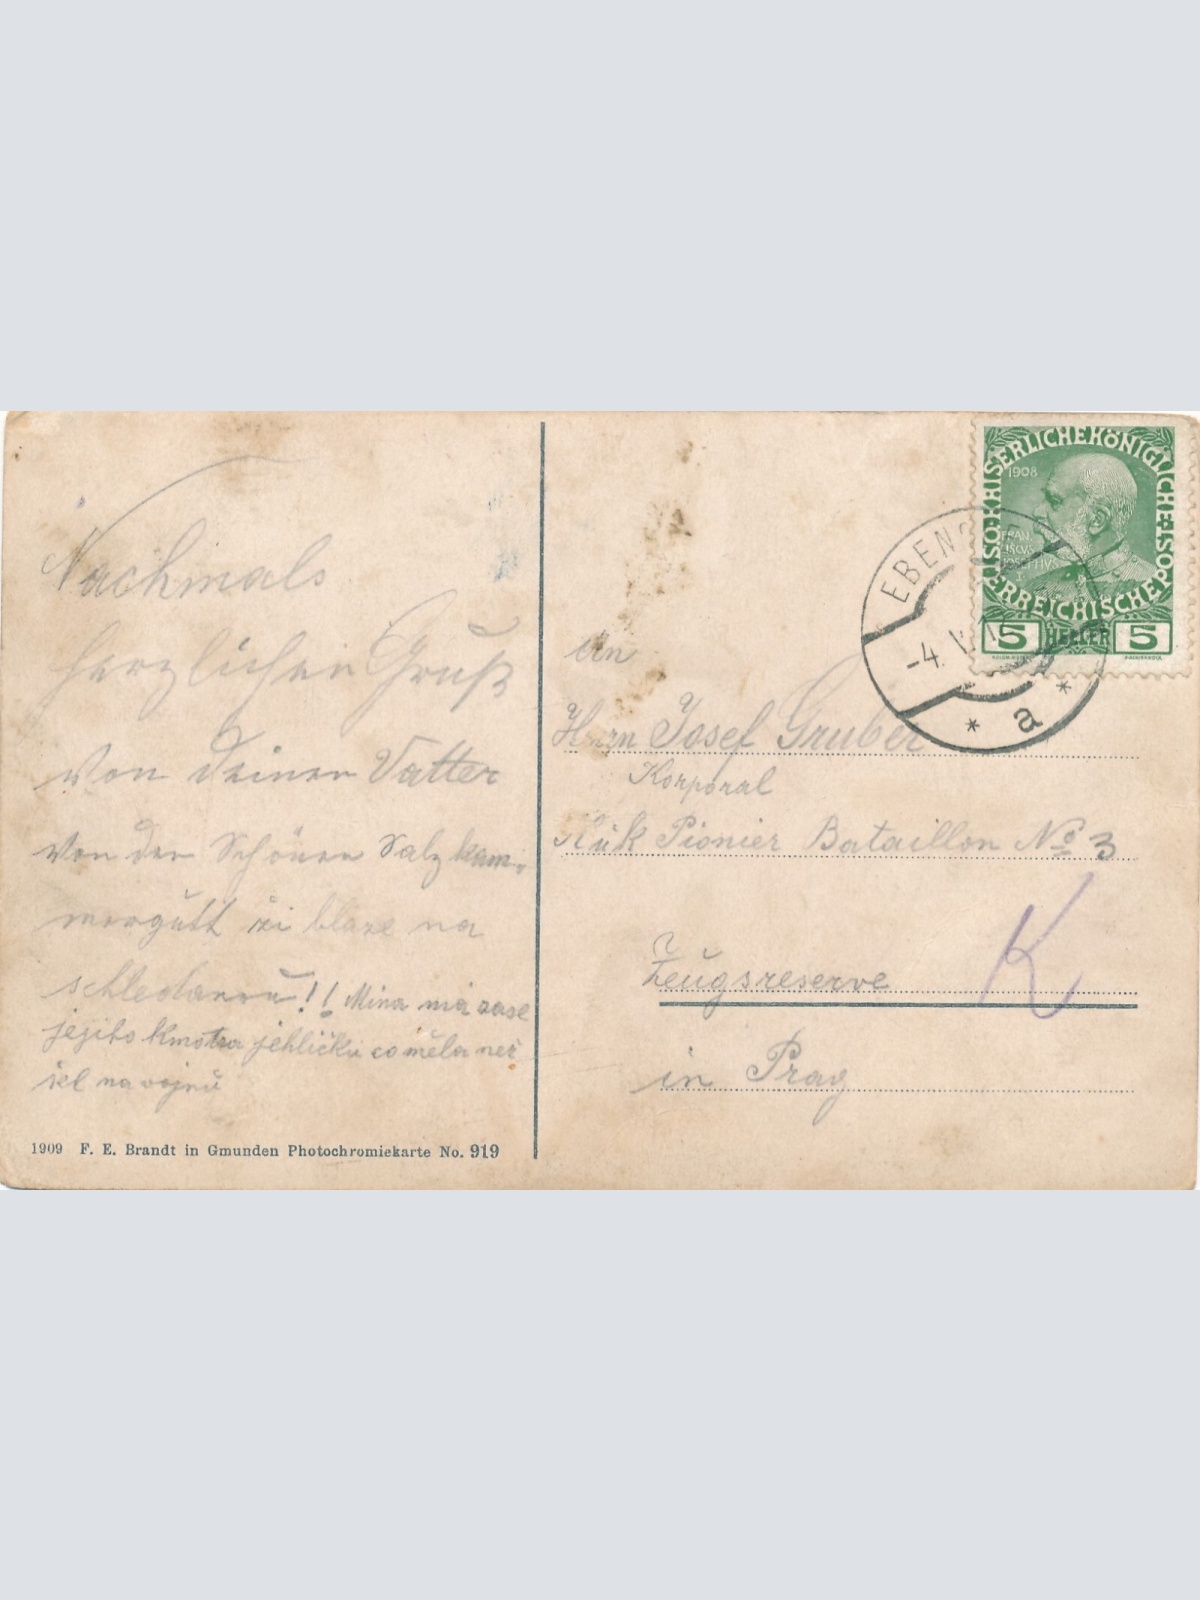 Nachmals
herzlichen Gruß
von deinen Vatter
von der Schönen Salz kam-
mergutt na
schledanou!! Mina má zase
jehličku co měla než
šel na vojnu
1909 F. E. Brandt in Gmunden Photochromiekarte No. 919
KAISERLICHE KÖNIGLICHE ÖSTERREICHISCHE POST
1908
FRAN
CISCVS
IOSEPHVS
I
5 HELLER 5
EBENS
-4. V.
* a *
An
Herrn Josef Gruber
Korporal
K u k Pionier Bataillon No 3
Zeugsreserve
K
in Prag